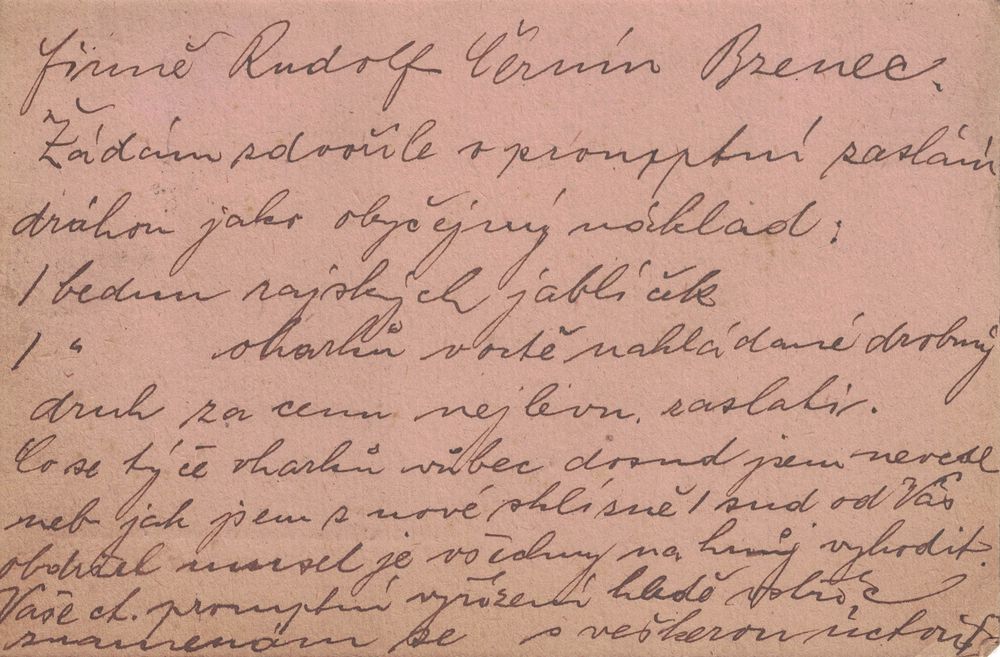 firmě Rudolf Černín Bzenec.
Žádám zdvořile o promptní zaslání
dráhou jako obyčejný náklad:
1 bednu rajských jablíček
1 " okurků v octě nakládané drobný
druh za cenu nejlevn. zaslati.
Co se týče okurků vůbec dosud jsem nevedl
neb jak jsem z nové sklizně 1 sud od Vás
obdržel musel je všechny na hnůj vyhodit.
Vaše ct. promptní vyřízení hledě vstříc
znamenám se s veškerou úctou